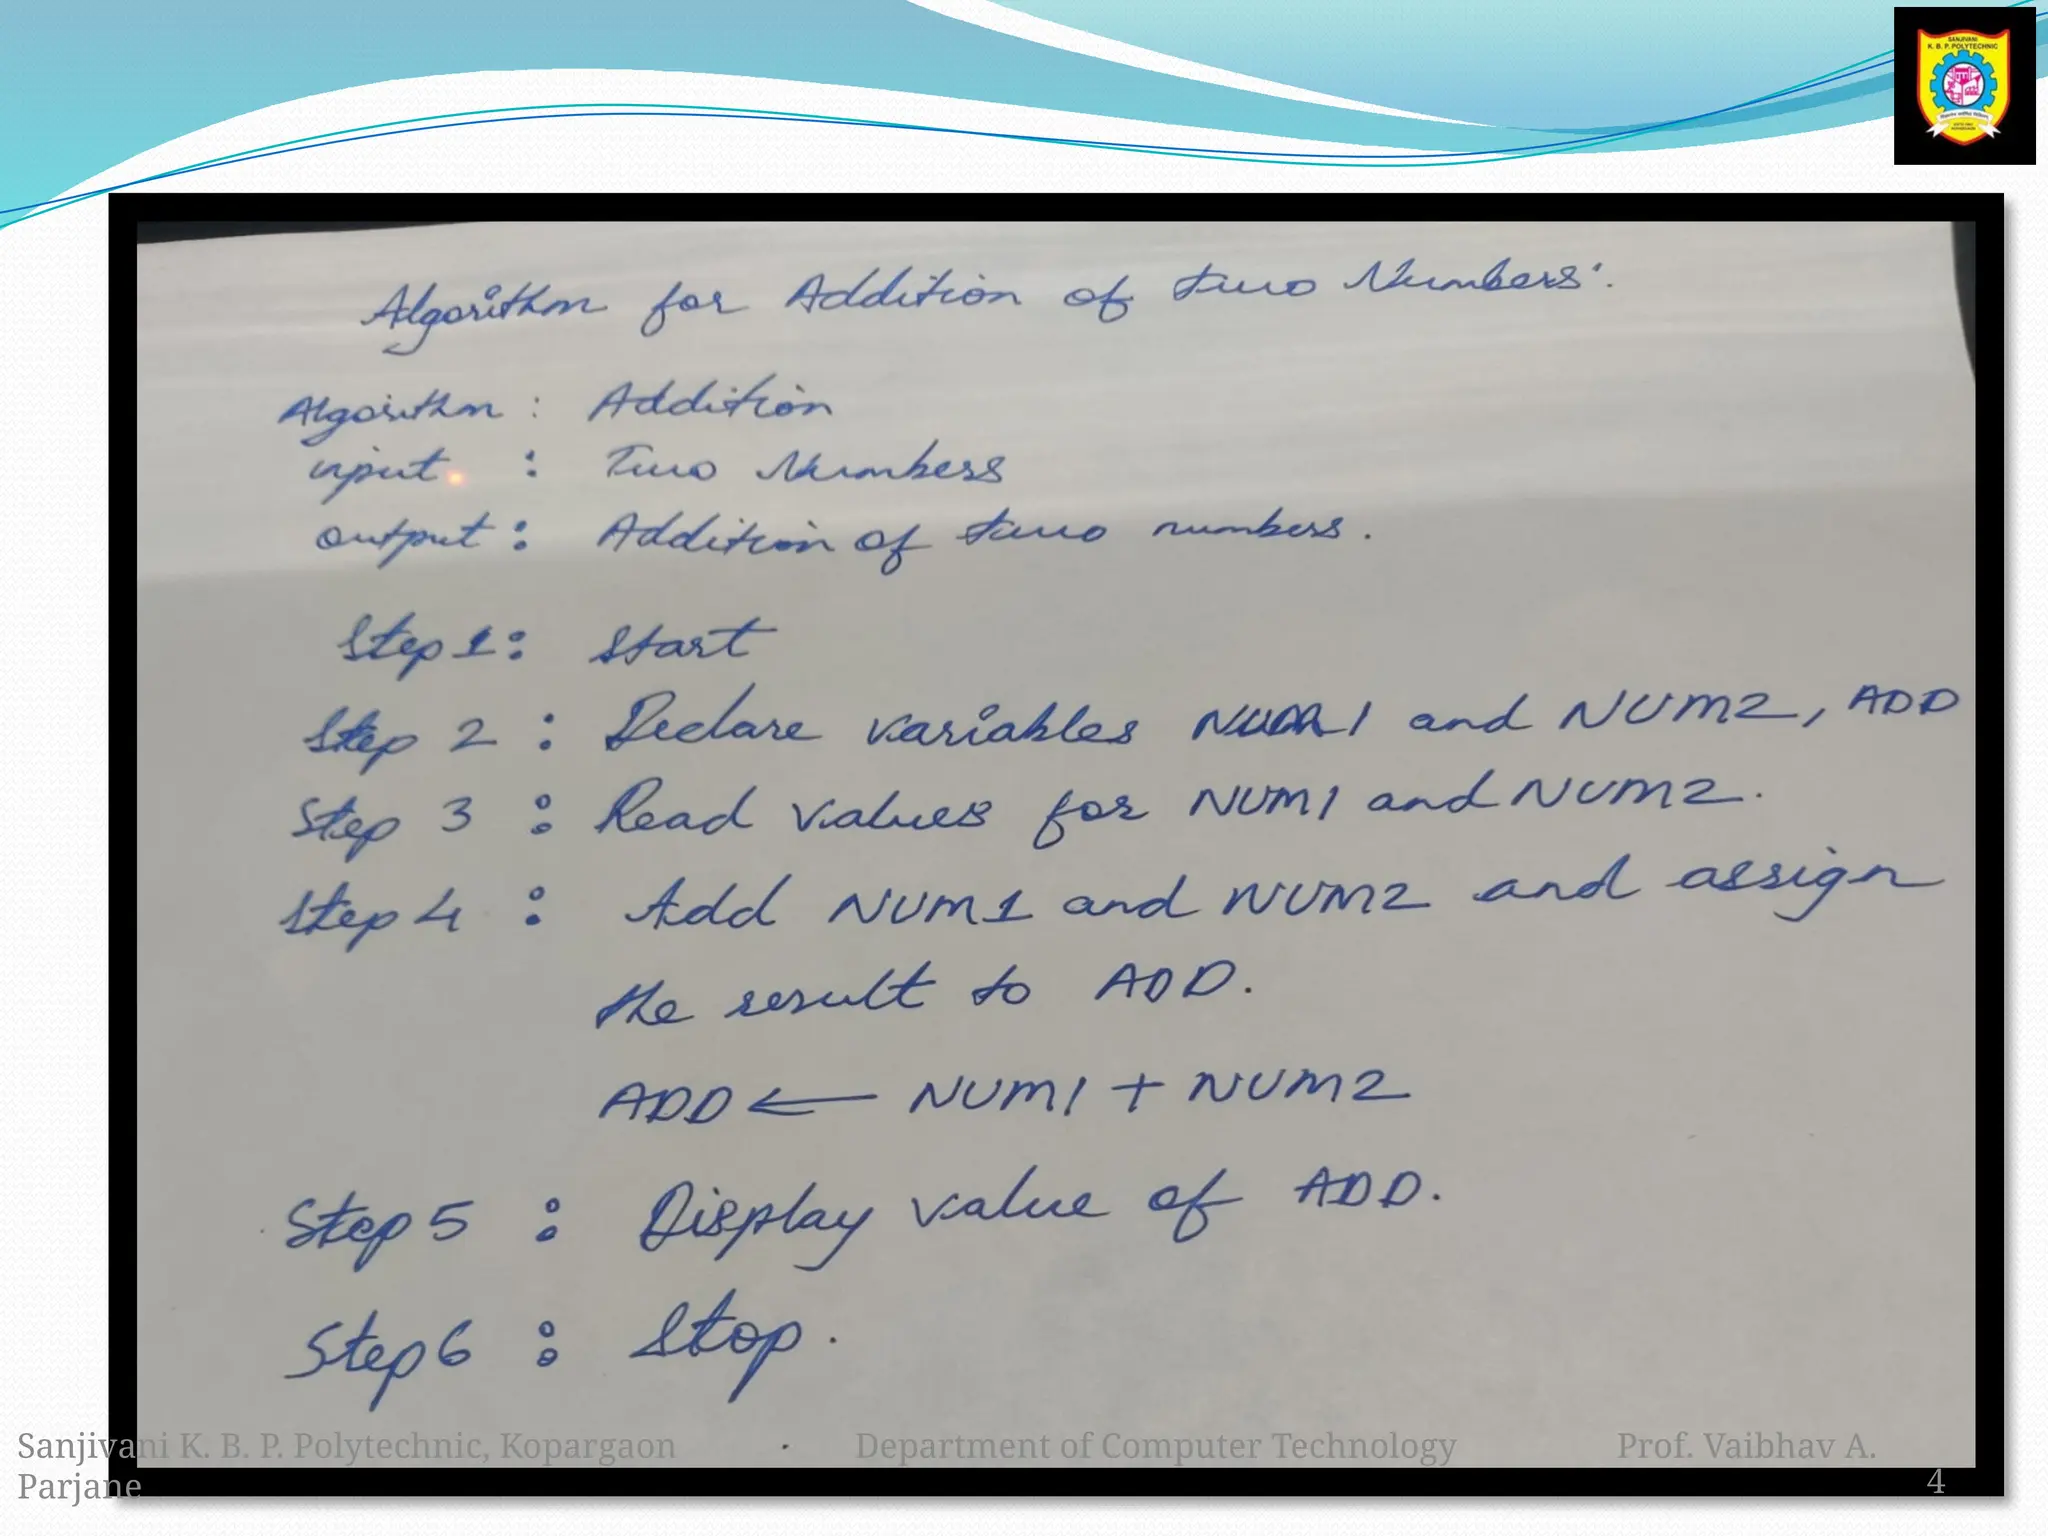 SANJIVANI
K. B. P. POLYTECHNIC
Algorithm for Addition of Two Numbers:
Algorithm : Addition
input : Two Numbers
output : Addition of two numbers.
Step 1 : Start
Step 2 : Declare variables NUM1 and NUM2, ADD
Step 3 : Read values for NUM1 and NUM2.
Step 4 : Add NUM1 and NUM2 and assign
the result to ADD.
ADD ← NUM1 + NUM2
Step 5 : Display value of ADD.
Step 6 : Stop.
Sanjivani K. B. P. Polytechnic, Kopargaon Department of Computer Technology Prof. Vaibhav A.
Parjane 4